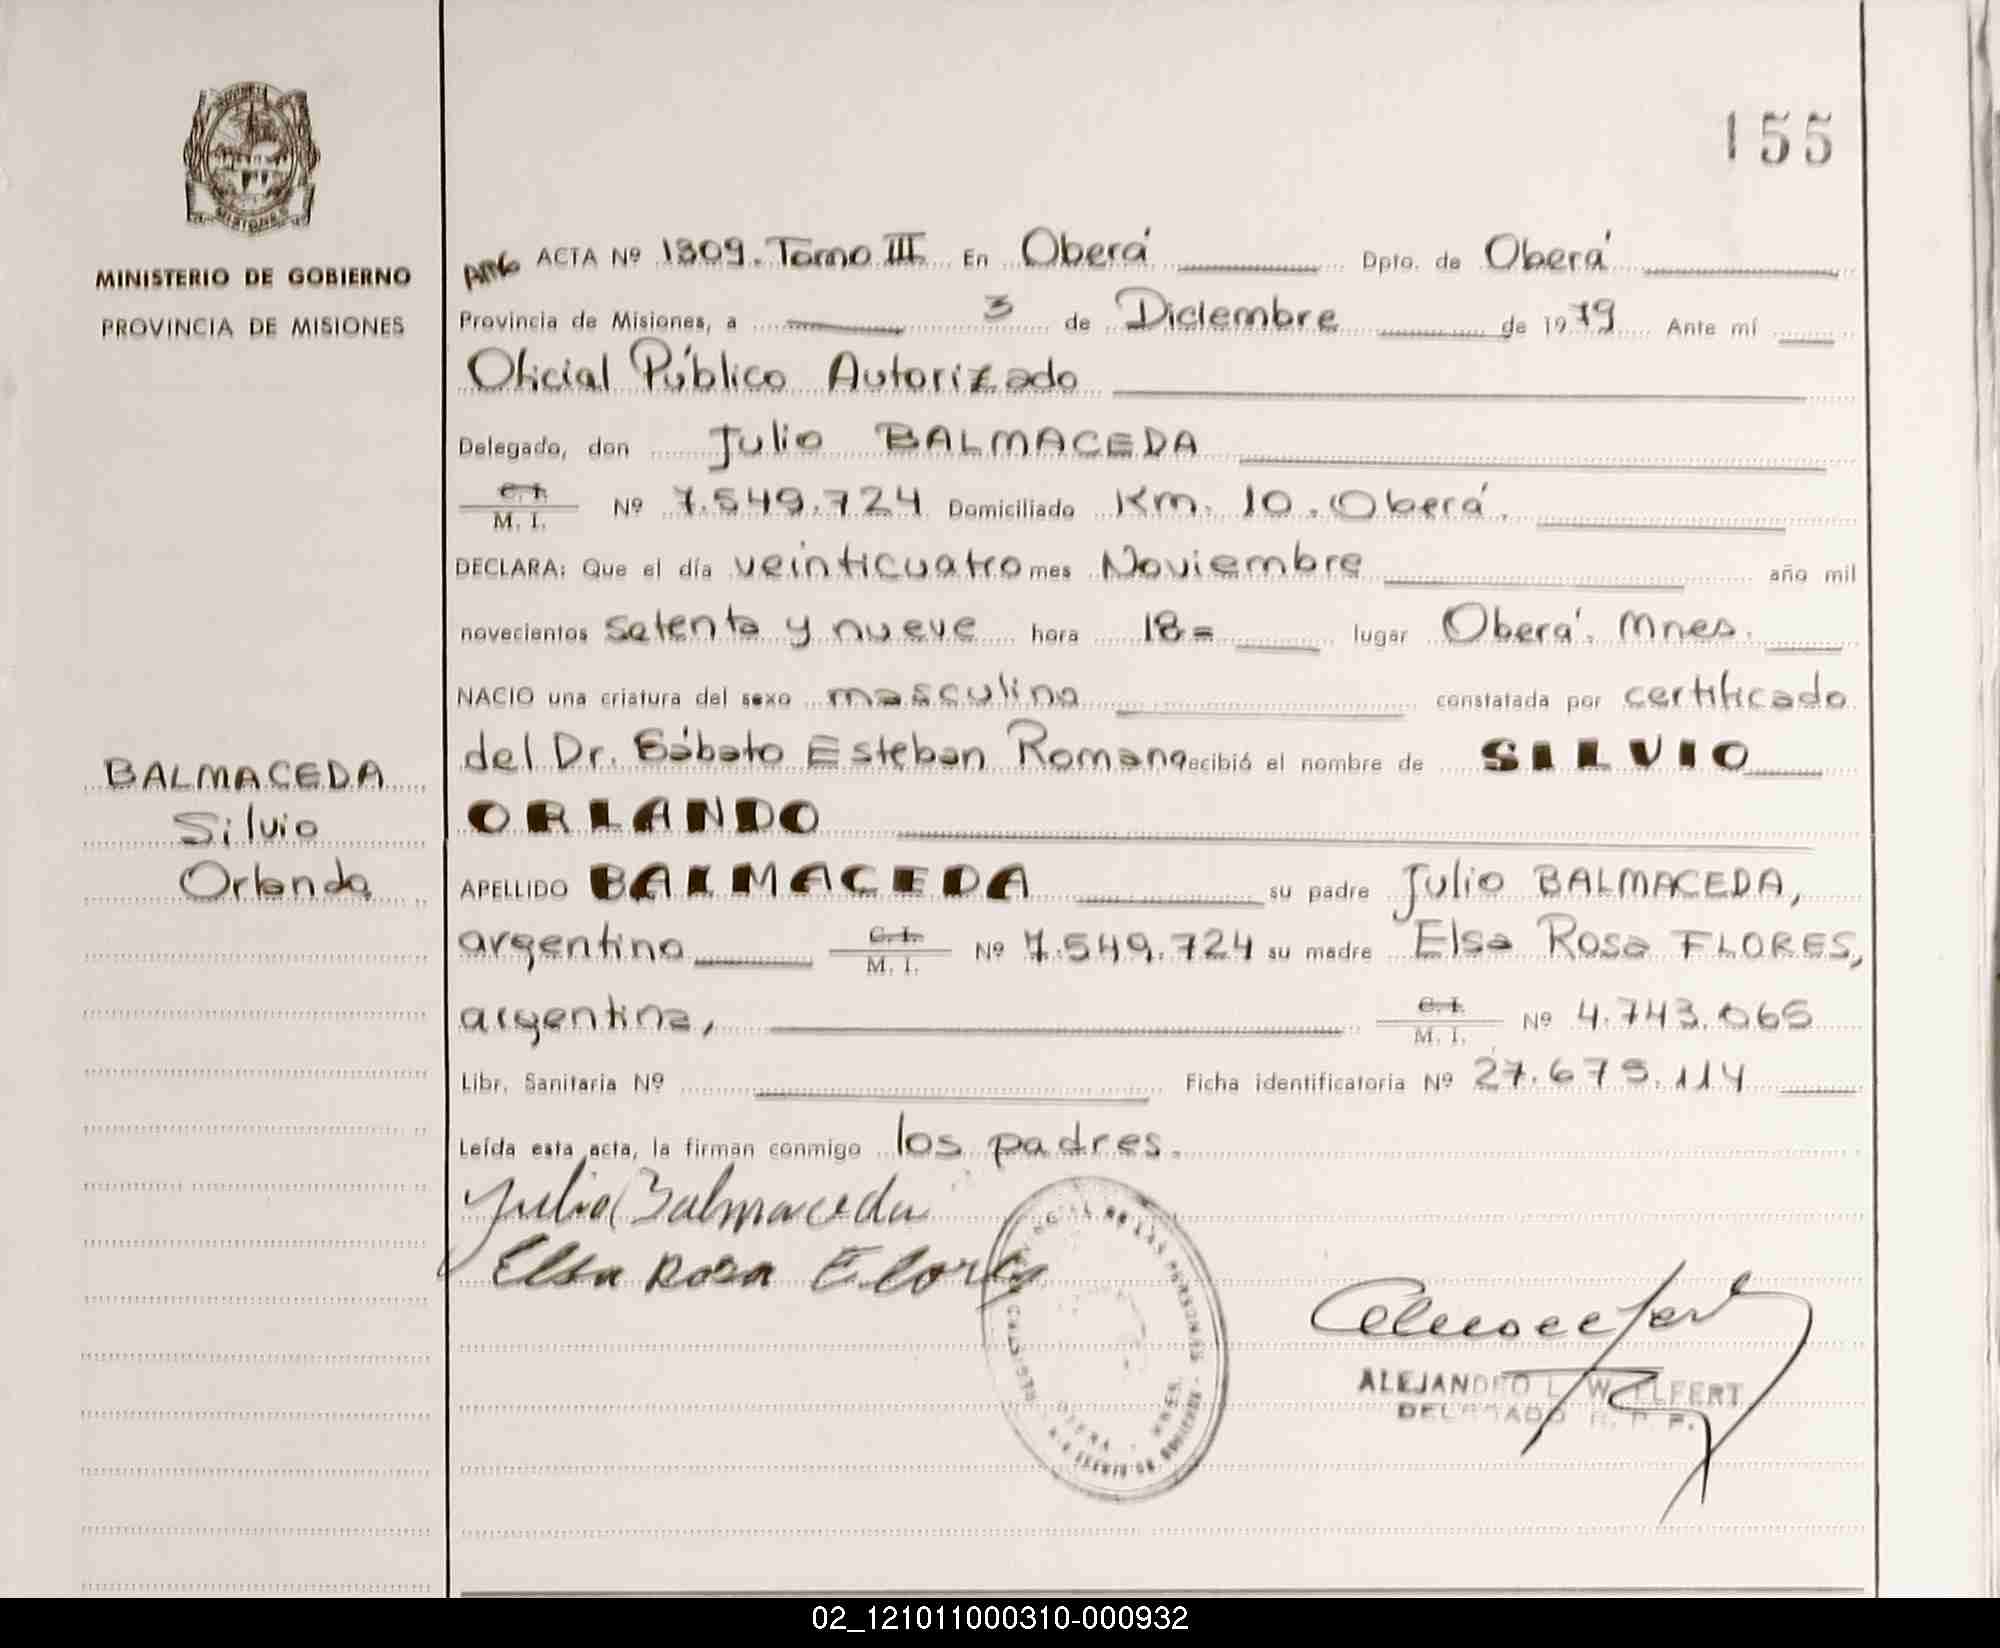 155
MINISTERIO DE GOBIERNO
PROVINCIA DE MISIONES
ACTA Nº 1309. Tomo III En Oberá Dpto. de Oberá
Provincia de Misiones, a 3 de Diciembre de 1979 Ante mí
Oficial Público Autorizado
Delegado, don Julio BALMACEDA
C. I. / M. I. Nº 7.549.724 Domiciliado Km. 10. Oberá.
DECLARA: Que el día veinticuatro mes Noviembre año mil
novecientos setenta y nueve hora 18= lugar Oberá. Mnes.
NACIO una criatura del sexo masculino constatada por certificado
del Dr. Sábato Esteban Romano recibió el nombre de SILVIO
ORLANDO
APELLIDO BALMACEDA su padre Julio BALMACEDA,
argentino C. I. / M. I. Nº 7.549.724 su madre Elsa Rosa FLORES,
argentina, C. I. / M. I. Nº 4.743.065
Libr. Sanitaria Nº Ficha identificatoria Nº 27.675.114
Leída esta acta, la firman conmigo los padres.
BALMACEDA
Silvio
Orlando
Julio Balmaceda
Elsa Rosa Flores
ALEJANDRO L. WELFERT
DELEGADO R. P. P.
02_121011000310-000932